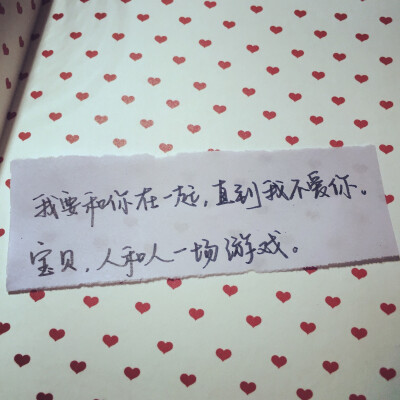 我要和你在一起，直到我不爱你。
宝贝，人和人一场游戏。